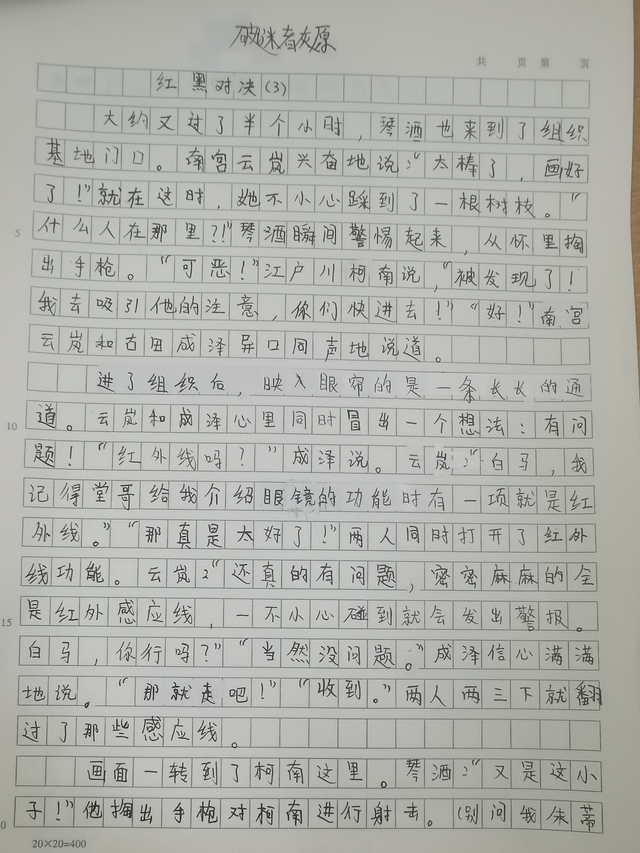 破谜者灰原
共 页 第 页
红黑对决(3)
大约又过了半个小时，琴酒也来到了组织
基地门口。南宫云岚兴奋地说：“太棒了，画好
了！”就在这时，她不小心踩到了一根树枝。“
5 什么人在那里？！”琴酒瞬间警惕起来，从怀里掏
出手枪。“可恶！”江户川柯南说，“被发现了！
我去吸引他的注意，你们快进去！”“好！”南宫
云岚和古田成泽异口同声地说道。
进了组织后，映入眼帘的是一条长长的通
10 道。云岚和成泽心里同时冒出一个想法：有问
题！“红外线吗？”成泽说。云岚：“白马，我
记得堂哥给我介绍眼镜的功能时有一项就是红
外线。”“那真是太好了！”两人同时打开了红外
线功能。云岚：“还真的有问题，密密麻麻的全
15 是红外感应线，一不小心碰到就会发出警报。
白马，你行吗？”“当然没问题。”成泽信心满满
地说。“那就走吧！”“收到。”两人两三下就翻
过了那些感应线。
画面一转到了柯南这里。琴酒：“又是这小
0 子！”他掏出手枪对柯南进行射击。（别问我朱蒂
20×20=400